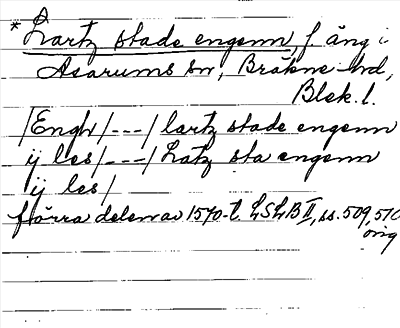 * Lartz stade engenn, f. äng i
Asarums sn, Bräkne hd,
Blek. l.
/Engh/ --- / lartz stade engenn
ij les / --- / Latz sta engenn
ij les /
förra delen av 1570-t. LSLB II, ss. 509, 510
orig